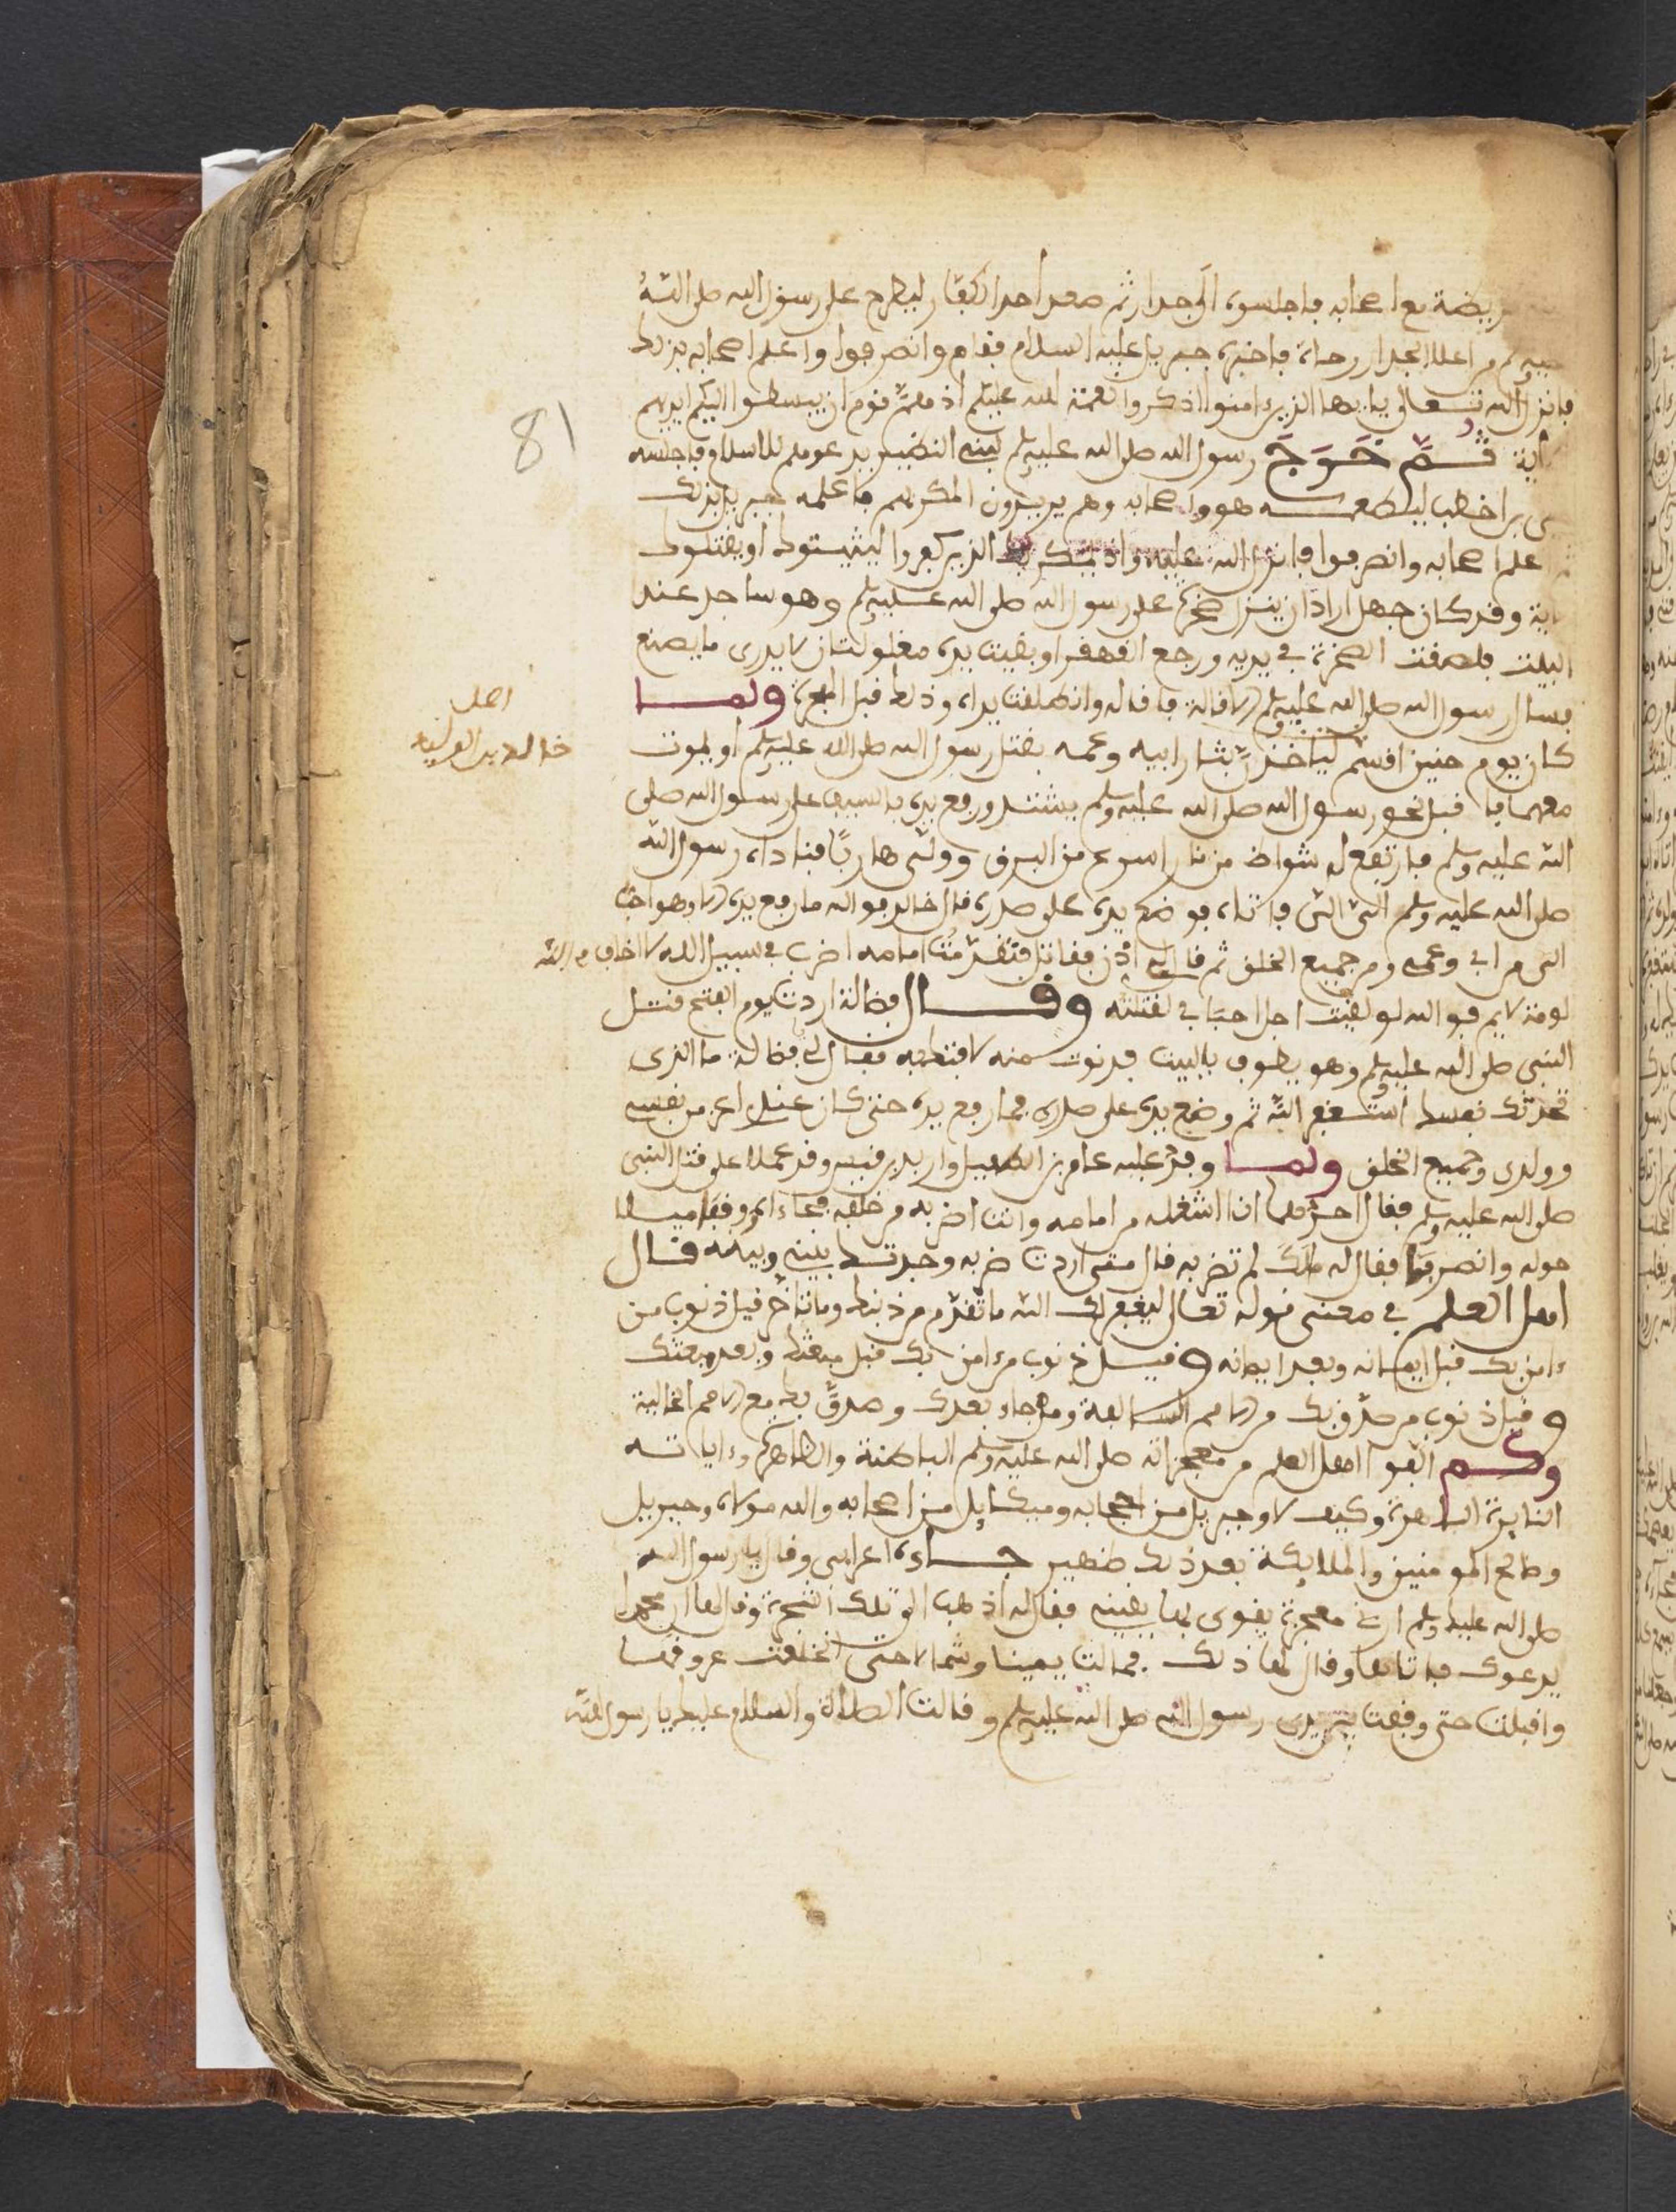 قريضة مع اصحابه فاجلسوه الى جدار ثم صعد احد الكفار ليطرح على رسول الله صلى الله
عليه وسلم من اعلا الجدار رحاة فاخبره جبريل عليه السلام فقام وانصرفوا واعلم اصحابه بذلك
فانزل الله تعالى يايها الذين ءامنوا اذكروا نعمة الله عليكم اذ هم قوم ان يبسطوا اليكم ايديهم
الاية ثُمَّ خَرَجَ رسول الله صلى الله عليه وسلم لبني النضير يدعوهم للاسلام فاجلسه
حيى بن اخطب ليطعمه هو واصحابه وهم يريدون المكر بهم فاعلمه جبريل بذلك
فاعلم اصحابه وانصرفوا فانزل الله عليه واذ يمكر بك الذين كفروا ليثبتوك او يقتلوك
الاية وقد كان جهل اراد ان ينزل صخرة على رسول الله صلى الله عليه وسلم وهو ساجد عند
البيت فلصقت الصخرة في يديه ورجع القهقرا وبقيت يده مغلولتان لا يدرى ما يصنع
فسال رسول الله صلى الله عليه وسلم الاقالة فاقاله وانطلقت يداه وذلك قبل الهجرة ولما
كان يوم حنين اقسم لياخذن بثار ابيه وعمه بقتل رسول الله صلى الله عليه وسلم او يموت
اصل
خالد بن الوليد
معهما فاقبل نحو رسول الله صلى الله عليه وسلم يشتد ورفع يده بالسيف على رسول الله صلى
الله عليه وسلم فارتفع له شواظ من نار اسرع من البرق وولى هاربًا فناداه رسول الله
صلى الله عليه وسلم الىّ الىّ فاتاه فوضع يده على صدره قال خالد فوالله ما رفع يده الا وهو احب
الى من ابى وعمى ومن جميع الخلق ثم قال له اذن فقاتل فتقدمت امامه اضرب في سبيل الله لا اخاف في الله
لومة لايم فوالله لو لقيت اجل احبابى لقتلته وقال فضالة اردت يوم الفتح قتل
النبى صلى الله عليه وسلم وهو يطوف بالبيت فدنوت منه لاقتله فقال لى يا فضالة ما الذى
تحدثك نفسك استغفر الله ثم وضع يده على صدرى فما رفع يده حتى كان عندى اعز من نفسى
وولدى وجميع الخلق ولما وفد عليه عامر بن الطفيل واربد بن قيس وقد عملا على قتل النبى
صلى الله عليه وسلم فقال احدهما انا اشغله من امامه وانت اضربه من خلفه فجاءا ووقفا ميلا
حوله وانصرفا فقال له ملك لم تضربه قال متى اردت ضربه وجدتك بينى وبينه قال
اهل العلم في معنى قوله تعالى ليغفر لك الله ما تقدم من ذنبك وما تاخر قيل ذنوب من
ءامن بك قبل ايمانه وبعد ايمانه وقيل ذنوب من ءامن بك قبل مبعثك وبعد مبعثك
وقيل ذنوب من صدق بك من الامم السالفة ومن جاء بعدك وصدق بك مع الامم الخالية
وكم القوا اهل العلم من معجزاته صلى الله عليه وسلم الباطنة والظاهرة وءاياته
النايرة الباهرة وكيف لا وجبريل من اصحابه وميكايل من اصحابه والله مولاه وجبريل
وصالح المومنين والملايكة بعد ذلك ظهير جاءه اعرابى وقال يا رسول الله
صلى الله عليك وسلم ارنى معجزة يقوى بها يقينى فقال له اذهب الى تلك الشجرة وقل لها ان محمدا
يدعوك فاتاها وقال لها ذلك فمالت يمينا وشمالا حتى انخلعت عروقها
واقبلت حتى وقفت بين يدى رسول الله صلى الله عليه وسلم وقالت الصلاة والسلام عليك يا رسول الله
81